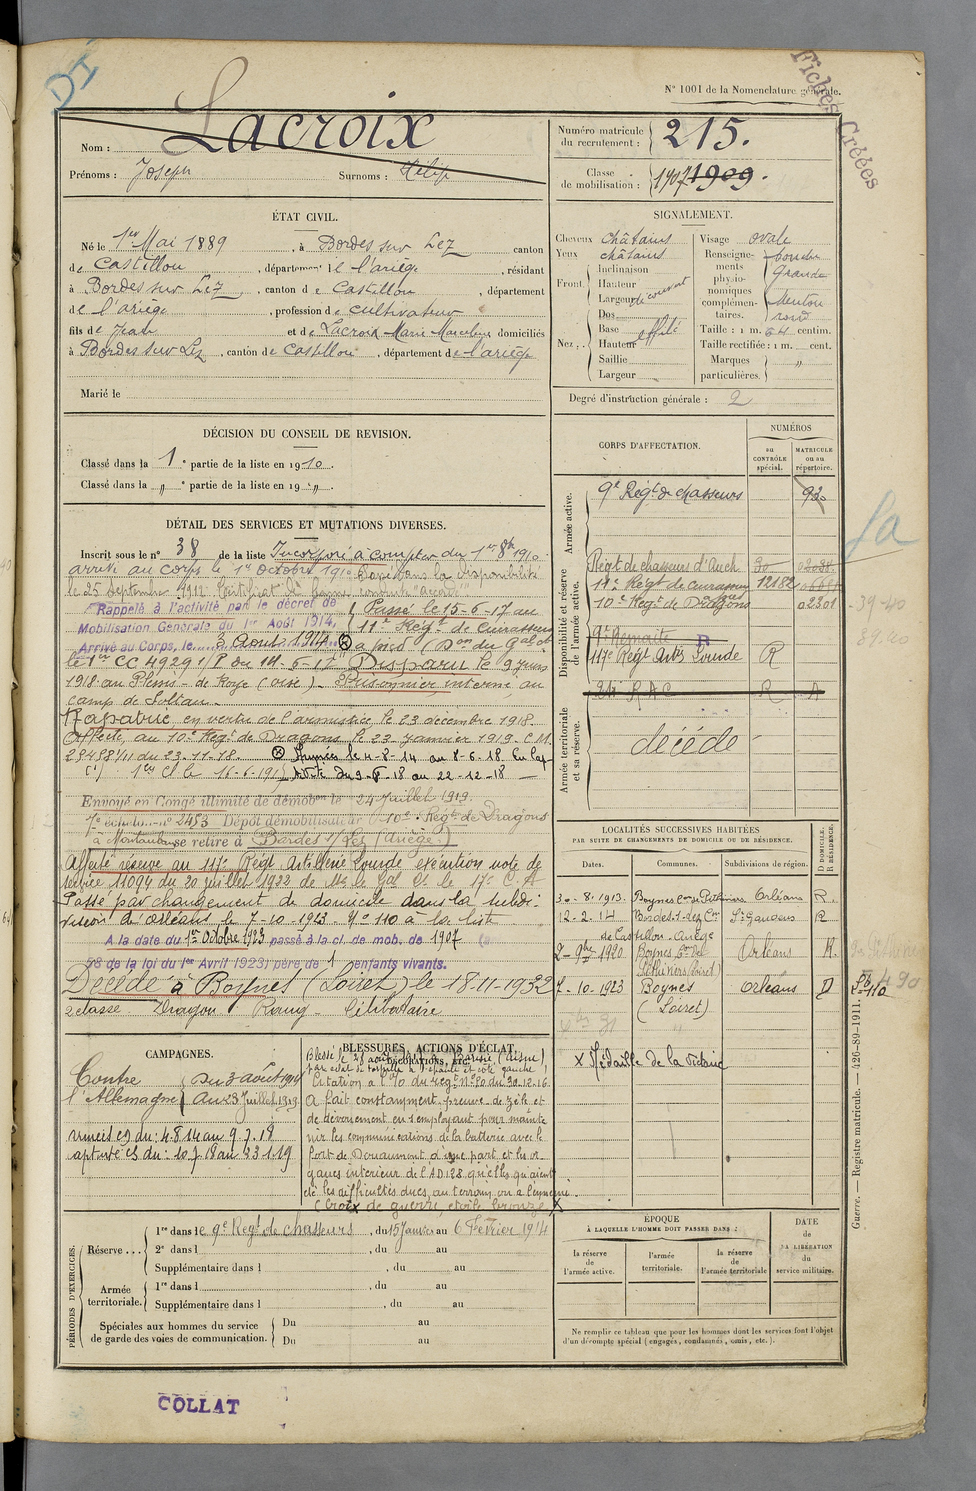 DI
Fiches Créées
N° 1001 de la Nomenclature générale.
Nom : Lacroix
Prénoms : Joseph Surnoms :
Numéro matricule du recrutement : 215.
Classe de mobilisation : 1907 1909.
ÉTAT CIVIL.
Né le 1er Mai 1889, à Bordes sur Lez canton
de Castillon, département de l'ariège, résidant
à Bordes sur Lez, canton de Castillon, département
de l'ariège, profession de cultivateur
fils de Jean et de Lacroix Marie domiciliés
à Bordes sur Lez, canton de Castillon, département de l'ariège
Marié le
SIGNALEMENT.
Cheveux châtains
Yeux châtains
Front. Inclinaison
Hauteur
Largeur découvert
Nez. Dos
Base effilé
Hauteur
Saillie
Largeur
Visage ovale
Renseignements physionomiques complémentaires. bouche
Grande
Menton
rond
Taille : 1 m. 64 centim.
Taille rectifiée : 1 m. cent.
Marques particulières. "
Degré d'instruction générale : 2
DÉCISION DU CONSEIL DE REVISION.
Classé dans la 1e partie de la liste en 1910.
Classé dans la " e partie de la liste en 19 ".
DÉTAIL DES SERVICES ET MUTATIONS DIVERSES.
Inscrit sous le n° 38 de la liste Incorporé à compter du 1er 8bre 1910
arrivé au corps le 1er octobre 1910 Passé dans la disponibilité
le 25 Septembre 1912. Certificat de bonne conduite "accordé"
Rappelé à l'activité par le décret de
Mobilisation Générale du 1er Août 1914,
Arrivé au Corps, le 3 Août 1914
Passé le 15-6-17 au
11e Régt de Cuirassiers
à pied
le 1er CC 49291/P du 14-6-17 Disparu le 9 juin
1918 au Plessis-de Roye (Oise). Prisonnier interné au
camp de Soltau.
Rapatrié en vertu de l'armistice le 23 décembre 1918.
Affecté au 10e Régt de Dragons le 23 janvier 1919. C.M.
23.11.18. Armées le 4-8-14 au 8-6-18 En cap-
tivité du 9-6-18 au 22-12-18
Envoyé en Congé illimité de démobon le 24 Juillet 1919.
7e échelon n° 2453 Dépôt démobilisateur 10e Régt de Dragons
à Montauban se retire à Bordes s/ Lez (Ariège)
Affecté réserve au 117e Régt Artillerie Lourde exécution note de
service 11094 du 20 juillet 1922 de Mr le Gal Ct le 17e C.A
Passé par changement de domicile dans la subdi-
vision d'Orléans le 7-10-1923. N° 110 à la liste
A la date du 1er Octobre 1923 passé à la cl. de mob. de 1907 (a
58 de la loi du 1er Avril 1923) père de 1 enfants vivants.
Décédé à Boynes (Loiret) le 18-11-1932
2e classe Dragon Rang Célibataire
CORPS D'AFFECTATION.
NUMÉROS
au CONTRÔLE spécial.
MATRICULE ou au répertoire.
Armée active.
9e Régt de chasseurs 930
Disponibilité et réserve de l'armée active.
Régt de chasseurs d'Auch 30
11e Régt de Cuirassiers 12182
10e Régt de Dragons 02301
9e Remonte R
117e Régt Artie Lourde R
R A C R A
39-40
Armée territoriale et sa réserve.
décédé
LOCALITÉS SUCCESSIVES HABITÉES
PAR SUITE DE CHANGEMENTS DE DOMICILE OU DE RÉSIDENCE.
Dates. Communes. Subdivisions de région. D DOMICILE. R RÉSIDENCE.
30-8-1913. Boynes con Pithiviers Orléans R.
12-2-14 Bordes-s-Lez Con St Gaudens R
de Castillon-Ariège
2-9bre-1920 Boynes Con de Orléans R.
Pithiviers (Loiret)
7-10-1923 Boynes Orléans D
(Loiret)
CAMPAGNES.
Contre l'Allemagne
Du 3 Août 1914
Au 23 Juillet 1919
unités CS du : 4.8.14 au 9.7.18
captivité CS du : 10 7 18 au 23 1.19
BLESSURES, ACTIONS D'ÉCLAT,
DÉCORATIONS, ETC.
Blessé le 28 août 1917 à (Aisne)
par éclat de torpille à l'épaule et côté gauche.
Citation à l'O du régt N° 20 du 30-12-16.
A fait constamment preuve de zèle et
de dévouement en s'employant pour mainte
nir les communications de la batterie avec le
fort de Douaumont d'une part et les or-
ganes intérieur de l'AD 128 quelles qu'aient
été les difficultés dues au terrain ou à l'ennemi.
(Croix de guerre, étoile bronze) X
X Médaille de la Victoire
PÉRIODES D'EXERCICES.
Réserve... 1re dans le 9e Régt de chasseurs, du 15 Janvier au 6 Février 1914
2e dans l , du au
Supplémentaire dans l , du au
Armée territoriale. 1re dans l , du au
Supplémentaire dans l , du au
Spéciales aux hommes du service de garde des voies de communication. Du au
Du au
ÉPOQUE
À LAQUELLE L'HOMME DOIT PASSER DANS :
la réserve de l'armée active.
l'armée territoriale.
la réserve de l'armée territoriale
DATE de LA LIBÉRATION du service militaire.
Ne remplir ce tableau que pour les hommes dont les services font l'objet
d'un décompte spécial (engagés, condamnés, omis, etc.).
Guerre. — Registre matricule. — 426-89-1911.
COLLAT